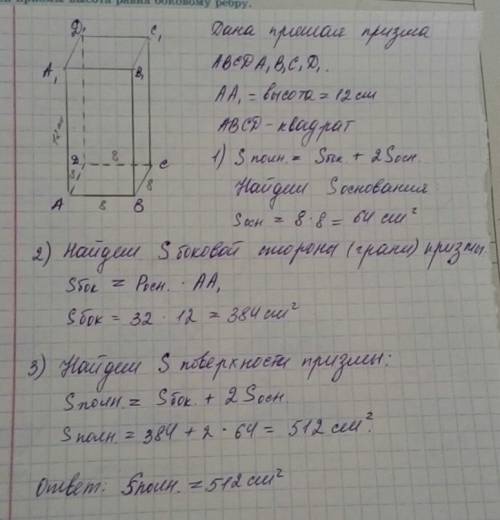 призмы высота равна боковому ребру.
Дана прямая призма
ABCDA₁B₁C₁D₁.
AA₁ = высота = 12 см
ABCD - квадрат
1) Sполн. = Sбок + 2Sосн.
Найдем Sоснования
Sосн = 8 · 8 = 64 см²
D₁ C₁
A₁ B₁
D 8 C
8 8
A 8 B
2) Найдем S боковой стороны (грани) призмы.
Sбок = Pосн. · AA₁
Sбок = 32 · 12 = 384 см²
3) Найдем S поверхности призмы:
Sполн. = Sбок. + 2Sосн
Sполн. = 384 + 2 · 64 = 512 см².
Ответ: Sполн. = 512 см²